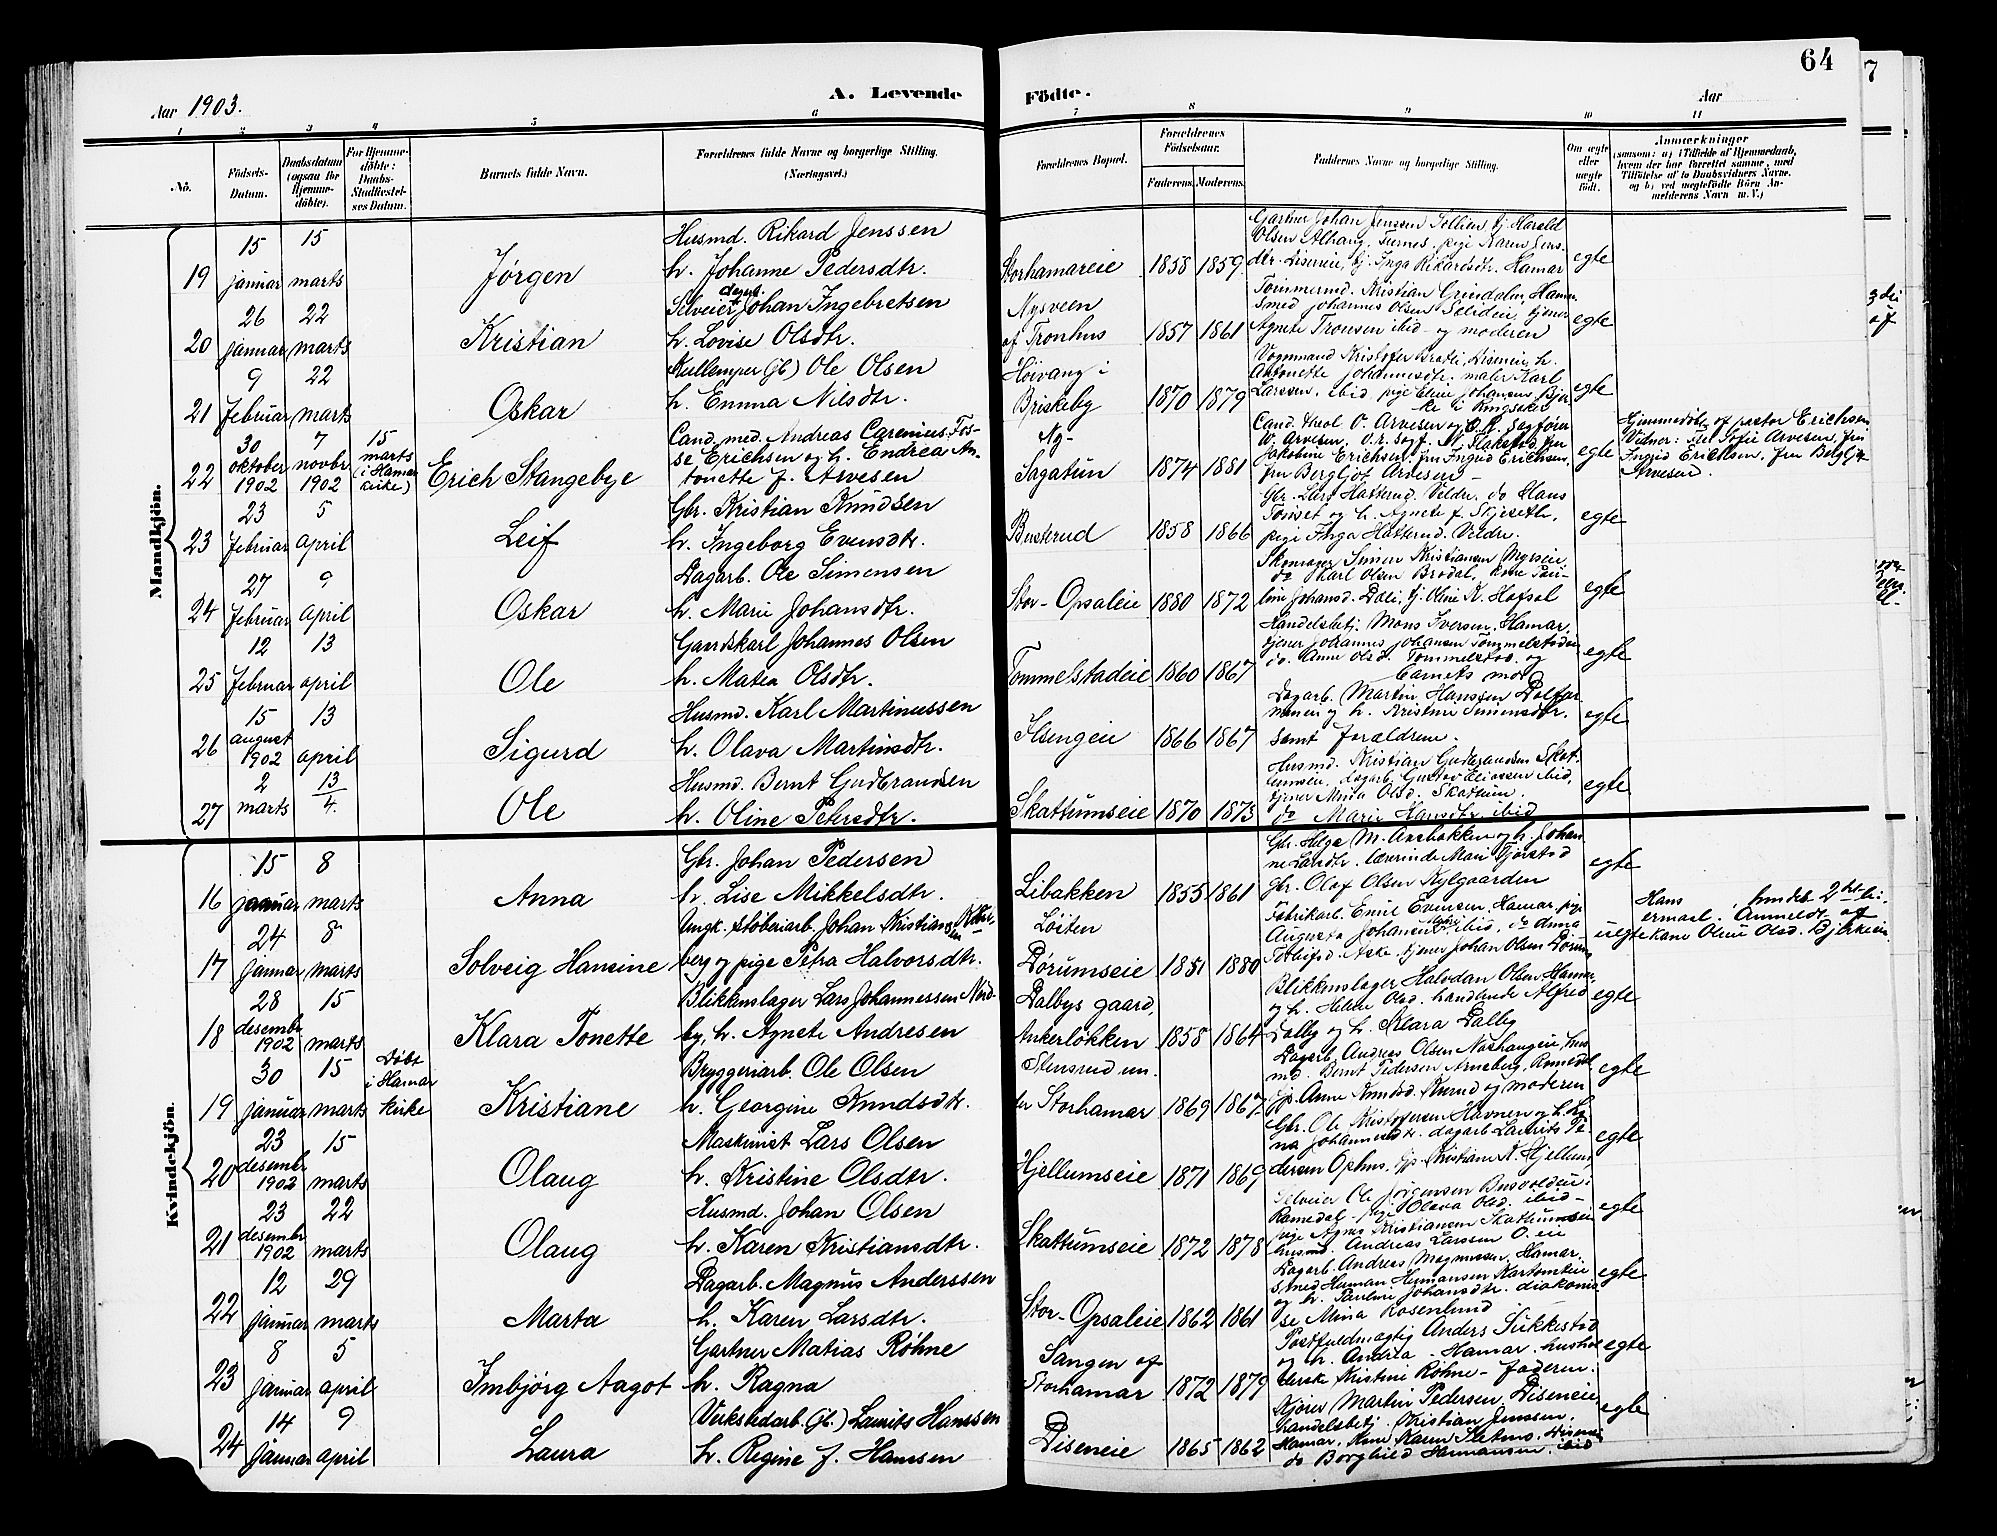 64
7
Aar 1903.
A. Levende
Födte.
Aar
1 2 3 4 5 6 7 8 9 10 11
No.
Födsels-Datum.
Daabsdatum (ogsaa for Hjemmedöbte).
For Hjemmedöbte: Daabs-Stadfæstelses Datum.
Barnets fulde Navn.
Forældrenes fulde Navne og borgerlige Stilling. (Næringsvei.)
Forældrenes Bopæl.
Forældrenes Födselsaar.
Faderens. Moderens.
Faddernes Navne og borgerlige Stilling.
Om ægte eller uægte födt.
Anmærkninger
(saasom: a) i Tilfælde af Hjemmedaab,
hvem der har forrettet samme, med
Tilföielse af to Daabsvidners Navne,
og b) ved uægtefödte Börn An-
melderens Navn m. V.)
Mandkjön.
19 15 januar 15 marts Jørgen Husmd. Rikard Jenssen h. Johanne Pedersdtr. Storhamareie 1858 1859 Gartner Johan Jenssen Olsen pige Karen Inga Rikardsdtr. Hamar egte
20 26 januar 22 marts Kristian Selveier Johan Ingebretsen h. Lovise Olsdtr. Nysveen af Tronhus 1857 1861 Tømmermd. Kristian Grindalen, Hamar Smed Johannes Olsen tjener Agnete Tronsen ibid og moderen egte
21 9 Februar 22 marts Oskar Ole Olsen h. Emma Nilsdtr. Høivang i Briskeby 1870 1879 Vognmand Kristofer Diseneie, h. Antonette Johannesdtr. maler Karl Larssen, ibid pige i Ringsaker egte
22 30 oktober 1902 7 novbr 1902 15 marts (i Hamar kirke) Erich Stangebye Cand. med. Andreas Carenius Fosse Erichsen og h. Endrea Antonette f. Arvesen Ny-Sagatun 1874 1881 Cand. theol O. Arvesen Jakobine Erichsen, frk Ingrid Erichsen, frk Bergljot Arvesen egte Hjemmedøbt af pastor Erichsen Vidner: Frk Sofie Arvesen, frk Ingrid Ericksen, frk Bergljot Arvesen.
23 23 Februar 5 april Leif Gbr. Kristian Knudsen h. Ingeborg Evensdtr. Busterud 1858 1866 Gbr. Lars Hatterud. Veldre. do Hans og h. Agnete f. Skjeseth, pige Inga Hatterud. Veldre. egte
24 27 Februar 9 april Oskar Dagarb. Ole Simensen h. Marie Johansdtr. Stor-Opsaleie 1880 1872 Skomager Simen Kristiansen Myrseie do Karl Olsen Brodal, kone Pauline Johansd. tj. Oline K. Hofsal egte
25 12 Februar 13 april Ole Gaardskarl Johannes Olsen h. Matea Olsdtr. Tommelstadeie 1860 1867 Handelsbetj. Mons Iversen, Hamar, tjener Johannes Johansen Tommelstadeie do. Anne Olsd. Tommelstad. og barnets mor egte
26 15 august 1902 13 april Sigurd Husmd. Karl Martinussen h. Olava Martinsdtr. Ilsengeie 1866 1867 Dagarb. Martin Hanssen og h. Kristine Simensdtr. samt forældrene. egte
27 2 marts 13/4. Ole Husmd. Bernt Gudbrandsen h. Oline Petersdtr. Skattumseie 1870 1873 Husmd. Kristian Gudbrandsen Skattumseie, dagarb. Gustav Eliassen ibid, tjener Mina Olsd. Skattum. do Marie Hansdtr. ibid egte
Kvindekjön.
16 15 januar 8 marts Anna Gbr. Johan Pedersen h. Lise Mikkelsdtr. Libakken 1855 1861 Gbr. Helge M. Aasbakken og h. Johanne Larsdtr. lærerinde Mari Gbr. Olaf Olsen Kylgaarden egte
17 24 januar 8 marts Solveig Hansine Ungk. støberiarb. Johan Kristiansen og pige Petra Halvorsdtr. Løiten Dørumseie 1881 1880 Fabrikarb. Emil Evensen, Hamar, pige Augusta Johansen ibid, do Anna tjener Johan Olsen uegte Hans hendes 2det leiermaal. Anmeldt af kone Oline Olsd.
18 28 desembr 1902 15 marts Klara Tonette Blikkenslager Lars Johannessen Nordby, h. Agnete Andresen Dalbys gaard, Ankerløkken 1858 1864 Blikkenslager Halvdan Olsen Hamar og h. Helene Olsd. handlende Alfred Dalby og h. Klara Dalby egte
19 30 januar 15 marts Døbt i Hamar kirke Kristiane Bryggeriarb. Ole Olsen h. Georgine Knudsdtr. Stensrud under Storhamar 1869 1867 Dagarb. Andreas Olsen husmd. Bernt Pedersen Arneberg, Romedal Anne Knudsd. og moderen egte
20 23 desembr 1902 15 marts Olaug Maskinist Lars Olsen h. Kristine Olsdtr. Hjellumseie 1871 1869 Gbr. Ole Kristoffersen Havnen og h. Lena Johannesdtr. dagarb. Laurits Pedersen Ophus, Kristiane K. Hjellum, egte
21 23 desembr 1902 22 marts Olaug Husmd. Johan Olsen h. Karen Kristiansdtr. Skattumseie 1872 1878 Selveier Ole Jørgensen i Romedal - pige Olava Olsd. ibid - pige Agnes Kristiansen Skattumseie husmd. Andreas Larssen egte
22 12 januar 29 marts Marta Dagarb. Magnus Anderssen h. Karen Larsdtr. Stor-Opsaleie 1862 1861 Dagarb. Andreas Magnussen, Hamar, smed Herman Hermansen og h. Pauline Johansdtr. diakonisse Mina Rosenlund egte
23 8 januar 5 april Imbjørg Aagot Gartner Matias Røhne h. Ragna Sangen af Storhamar 1872 1879 Postfuldmægtig Anders Sukkestad og h. Andrea - Hamar, Kristine Røhne - faderen. egte
24 14 januar 9 april Laura Verkstedarb. (Jb.) Laurits Hanssen h. Regine f. Hanssen Diseneie 1865 1862 Kjører Martin Pedersen Diseneie handelsbetj. Kristian Jenssen, Hamar, kone Karen do Borghild Hermansen, ibid egte